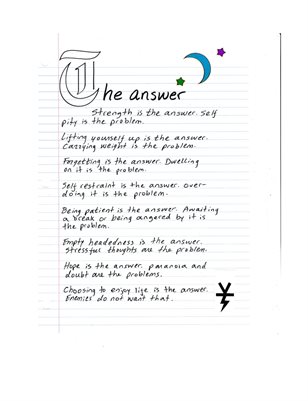 The answer
Strength is the answer. Self
pity is the problem.
Lifting yourself up is the answer.
Carrying weight is the problem.
Forgetting is the answer. Dwelling
on it is the problem.
Self restraint is the answer. Over-
doing it is the problem.
Being patient is the answer. Awaiting
a break or being angered by it is
the problem.
Empty headedness is the answer.
Stressful thoughts are the problem.
Hope is the answer. paranoia and
doubt are the problems.
Choosing to enjoy life is the answer.
Enemies do not want that.